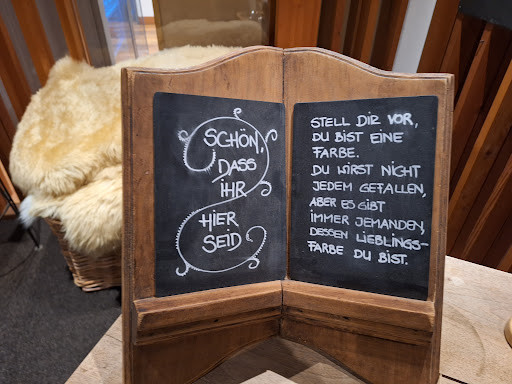 SCHÖN,
DASS
IHR
HIER
SEID
STELL DIR VOR,
DU BIST EINE
FARBE.
DU WIRST NICHT
JEDEM GEFALLEN,
ABER ES GIBT
IMMER JEMANDEN,
DESSEN LIEBLINGS-
FARBE DU BIST.